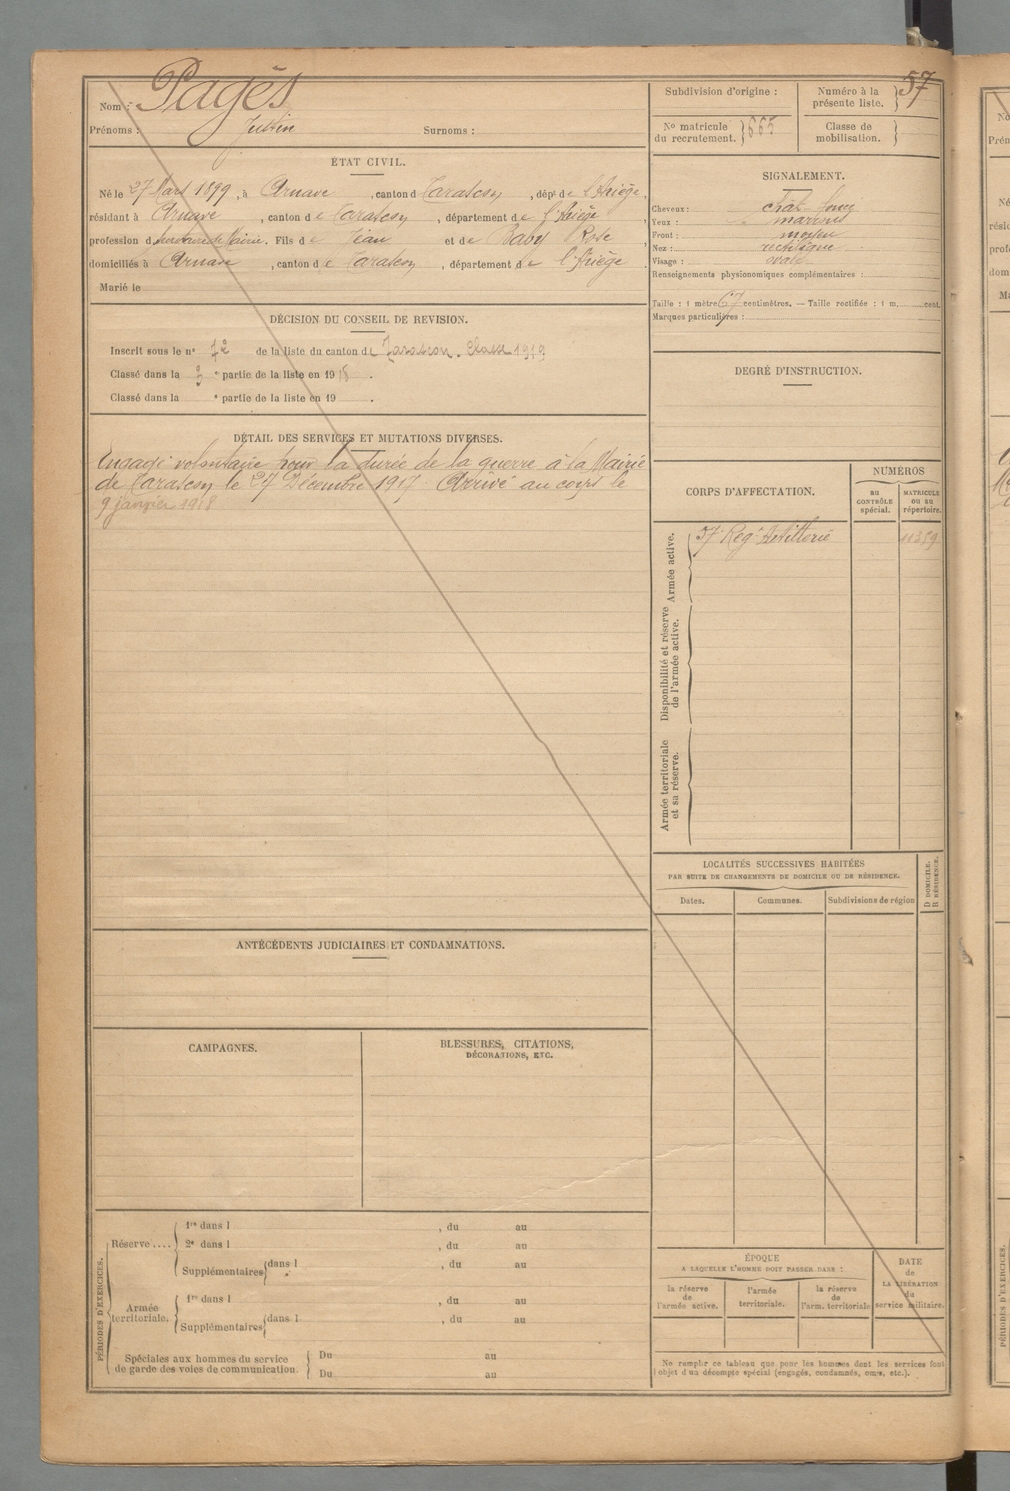 Nom : Pagès
Prénoms : Justin Surnoms :
ÉTAT CIVIL.
Né le 27 Mars 1899, à Arnave, canton d Tarascon, dép^t de l'Ariège,
résidant à Arnave, canton de Tarascon, département de l'Ariège
profession d Secrétaire de Mairie. Fils de Jean et de Baby Rose
domiciliés à Arnave, canton de Tarascon, département de l'Ariège
Marié le
DÉCISION DU CONSEIL DE REVISION.
Inscrit sous le n° 42 de la liste du canton de Tarascon. Classe 1919
Classé dans la e partie de la liste en 1918.
Classé dans la e partie de la liste en 19 .
DÉTAIL DES SERVICES ET MUTATIONS DIVERSES.
Engagé volontaire pour la durée de la guerre à la Mairie
de Tarascon le 27 Décembre 1917. Arrivé au corps le
9 janvier 1918
ANTÉCÉDENTS JUDICIAIRES ET CONDAMNATIONS.
CAMPAGNES.
BLESSURES, CITATIONS,
DÉCORATIONS, ETC.
PÉRIODES D'EXERCICES.
Réserve ....
1re dans l , du au
2e dans l , du au
Supplémentaires dans l , du au
Armée territoriale.
1re dans l , du au
Supplémentaires dans l , du au
Spéciales aux hommes du service
de garde des voies de communication.
Du au
Du au
Subdivision d'origine :
Numéro à la
présente liste. 57
N° matricule
du recrutement. 665
Classe de
mobilisation.
SIGNALEMENT.
Cheveux : chât. foncé
Yeux : marrons
Front : moyen
Nez : rectiligne
Visage : ovale
Renseignements physionomiques complémentaires :
Taille : 1 mètre 67 centimètres. — Taille rectifiée : 1 m. cent.
Marques particulières :
DEGRÉ D'INSTRUCTION.
CORPS D'AFFECTATION.
NUMÉROS
au
CONTRÔLE
spécial.
MATRICULE
ou au
répertoire.
Armée active.
57e Reg^t Artillerie 11359
Disponibilité et réserve
de l'armée active.
Armée territoriale
et sa réserve.
LOCALITÉS SUCCESSIVES HABITÉES
PAR SUITE DE CHANGEMENTS DE DOMICILE OU DE RÉSIDENCE.
D DOMICILE.
R RÉSIDENCE.
Dates. Communes. Subdivisions de région
ÉPOQUE
A LAQUELLE L'HOMME DOIT PASSER DANS :
la réserve
de
l'armée active.
l'armée
territoriale.
la réserve
de
l'arm. territoriale
DATE
de
LA LIBÉRATION
du
service militaire.
Ne remplir ce tableau que pour les hommes dont les services font
l'objet d'un décompte spécial (engagés, condamnés, omis, etc.).